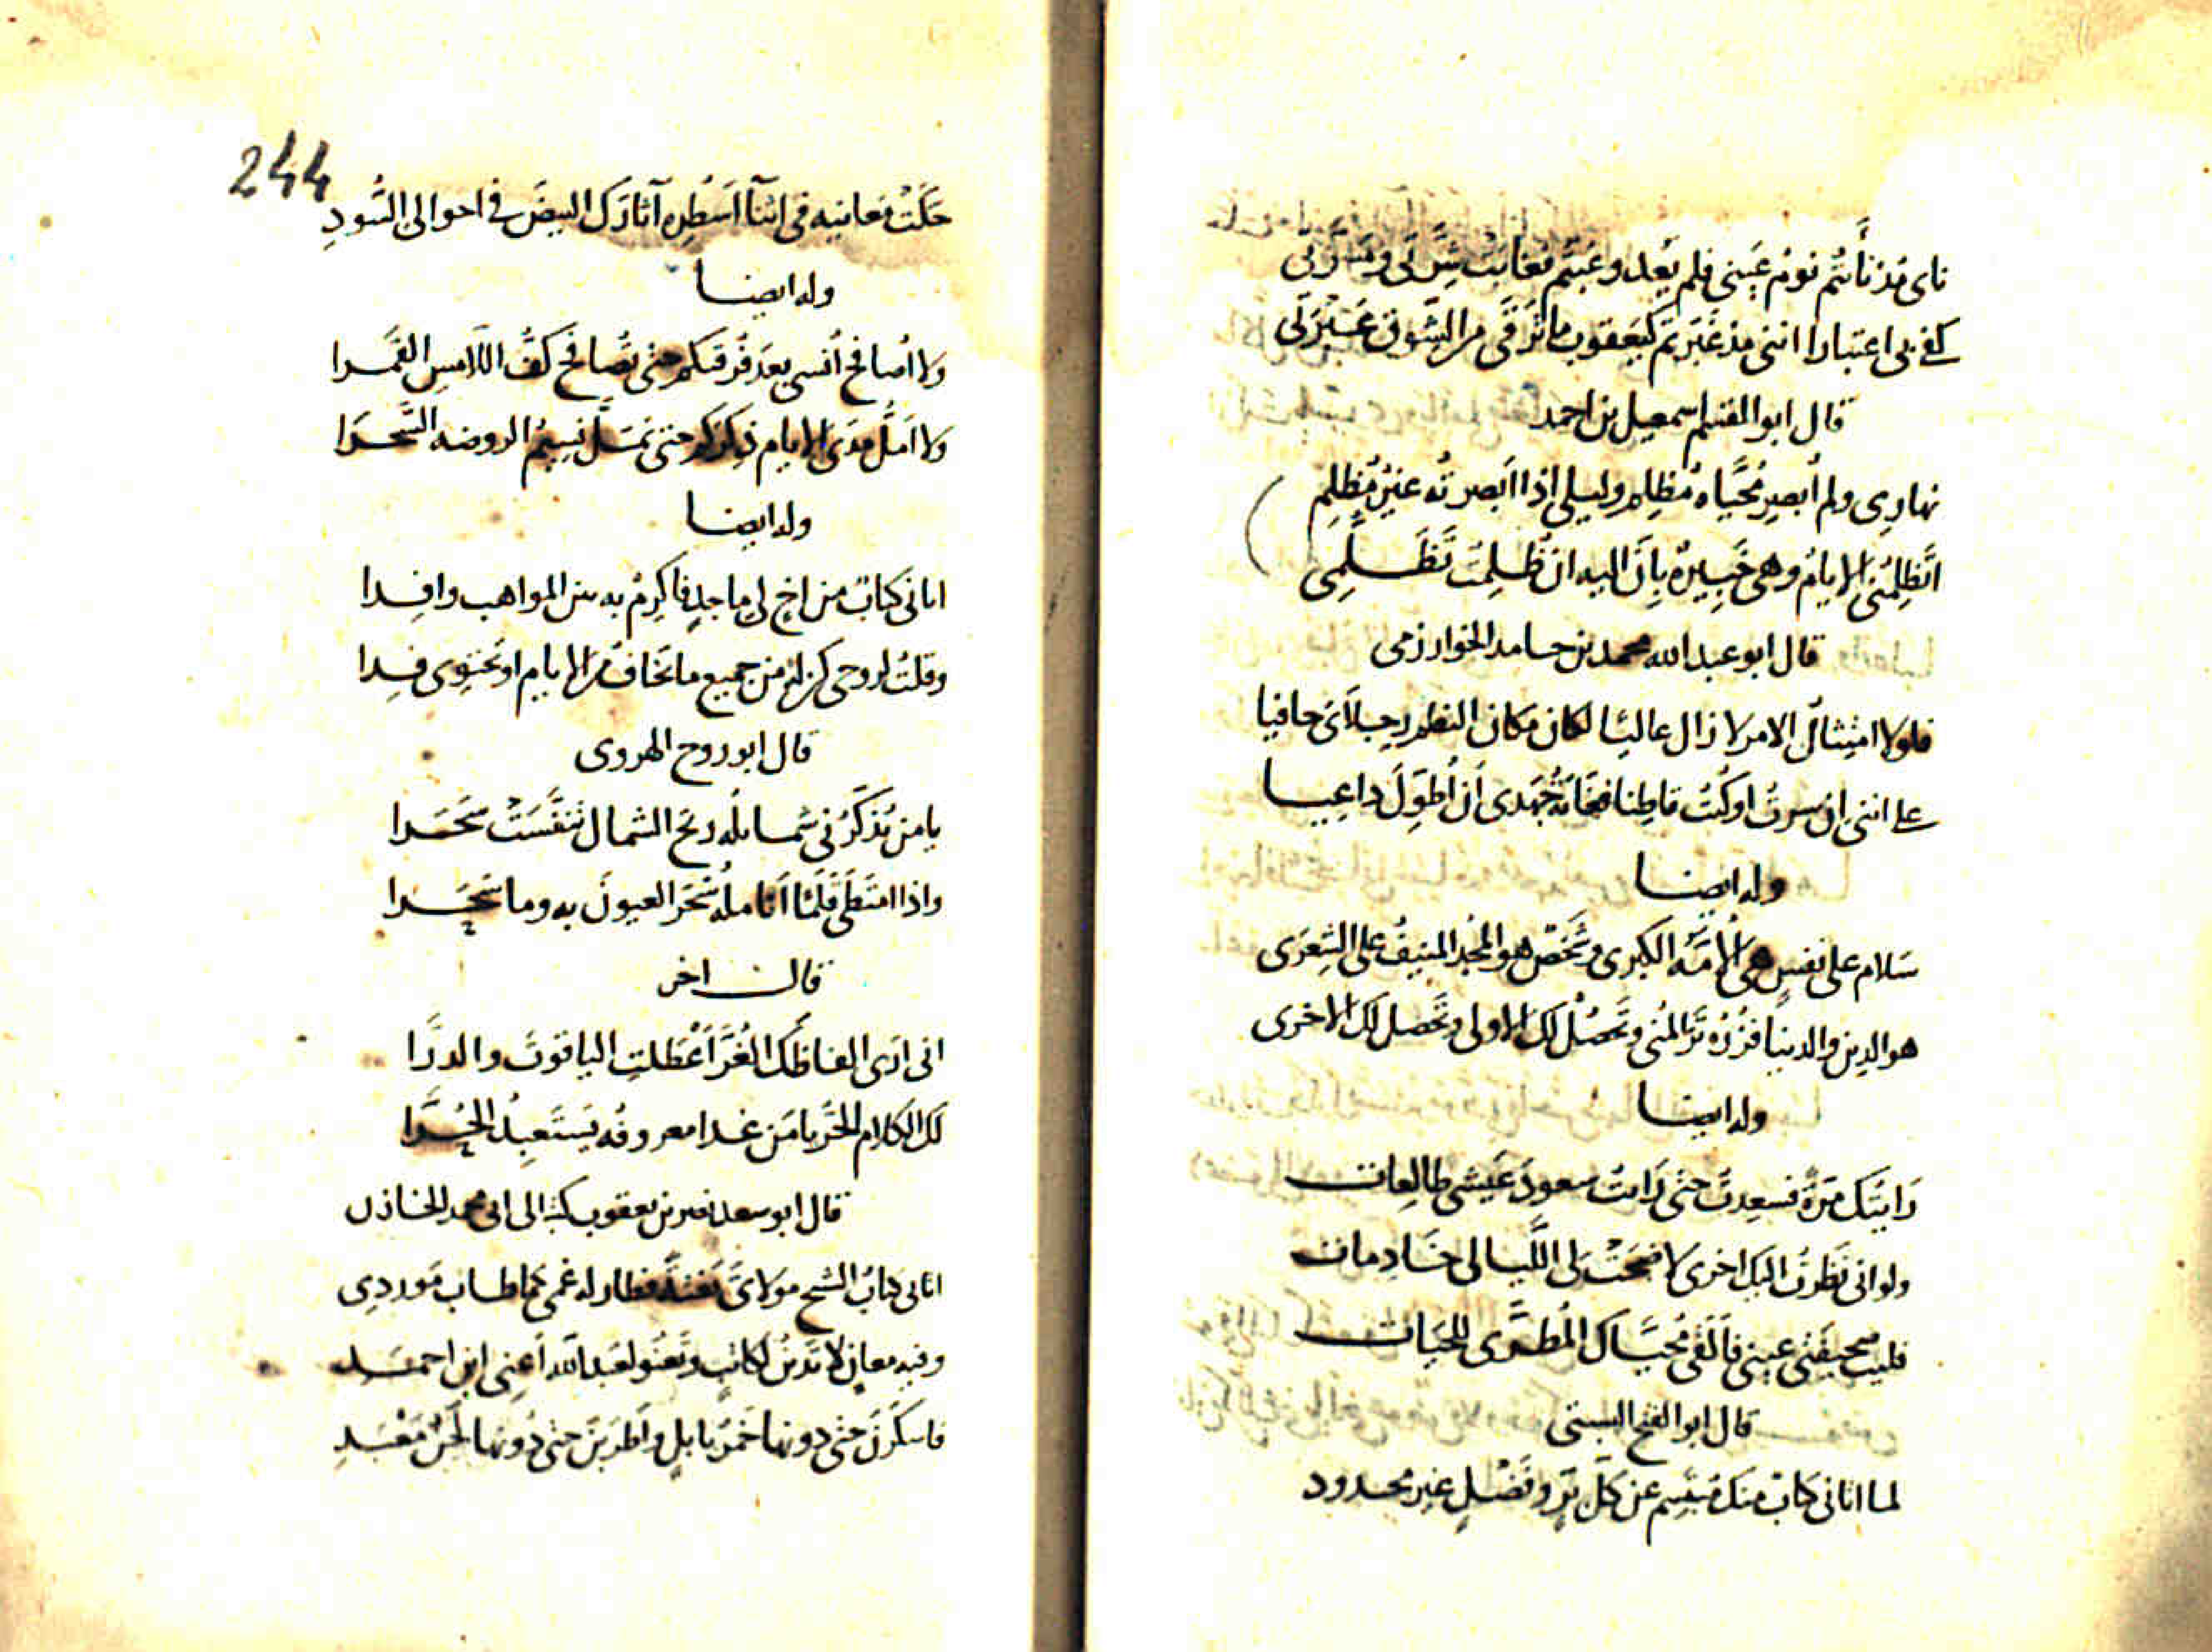 ناى مذ نأيتم نوم عيني فلم يعد وغبتم فغابت مسرتي
كفى بي اعتبارا انني مذ غبرتم كيعقوب ما ترقى من الشوق عبرتي
قال ابو القسم اسمعيل بن احمد
نهاري ولم أبصر محياه مظلم وليلي اذا ابصرته غير مظلم
اتظلمني الايام وهي خبيرة بان اليه ان ظلمت تظلمي
قال ابو عبد الله محمد بن حامد الخوارزمي
فلولا امتثال الامر لا زال عاليا لكان مكان النظم رجلاي حافيا
على انني ان سرت او كنت قاطنا فغاية جهدي ان اطول داعيا
وله ايضا
سلام على نفس هي الامة الكبرى وشخص هو المجد المنيف على الشعرى
هو الدين والدنيا فزره تر المنى وتحصل لك الاولى وتحصل لك الاخرى
وله ايضا
رايتك مرة فسعدت حتى رايت سعود عيشي طالعات
ولو اني نظرت اليك اخرى لاضحت لي الليالي خادمات
فليت صحيفتي عيني فالقى محياك المطرى للحيات
قال ابو الفتح البستي
لما اتاني كتاب منك مبتسم عن كل بر وفضل غير محدود
244
حكت معانيه في اثنا اسطره آثارك البيض في احوالي السود
وله ايضا
ولا اصافح أنسى بعد فرقتكم حتى تصافح كف اللامس القمرا
ولا امل مدى الايام ذكركم حتى تمل نسيم الروضة السحرا
وله ايضا
اتاني كتاب من اخ لي ماجد فاكرم به بين المواهب وافدا
وقلت لروحي كن له من جميع ما تخاف من الايام او تحتوي فدا
قال ابو روح الهروي
يا من تذكرني شمايله ريح الشمال تنفست سحرا
واذا امتطى قلما انامله سحر العيون به وما سحرا
قال اخر
اني ارى الفاظك الغرا عطلت الياقوت والدرا
لك الكلام الحر يا من غدا معروفه يستعبد الحرا
قال ابو سعد نصر بن يعقوب كتبه الى ابي محمد الخازن
اتاني كتاب الشيخ مولاي بغتة فطار له غمي كما طاب موردي
وفيه معان لا تدين لكاتب وتعنو لعبد الله اعني ابن احمد
فاسكرن حتى دونها خمر بابل واطربن حتى دونها لحن معبد